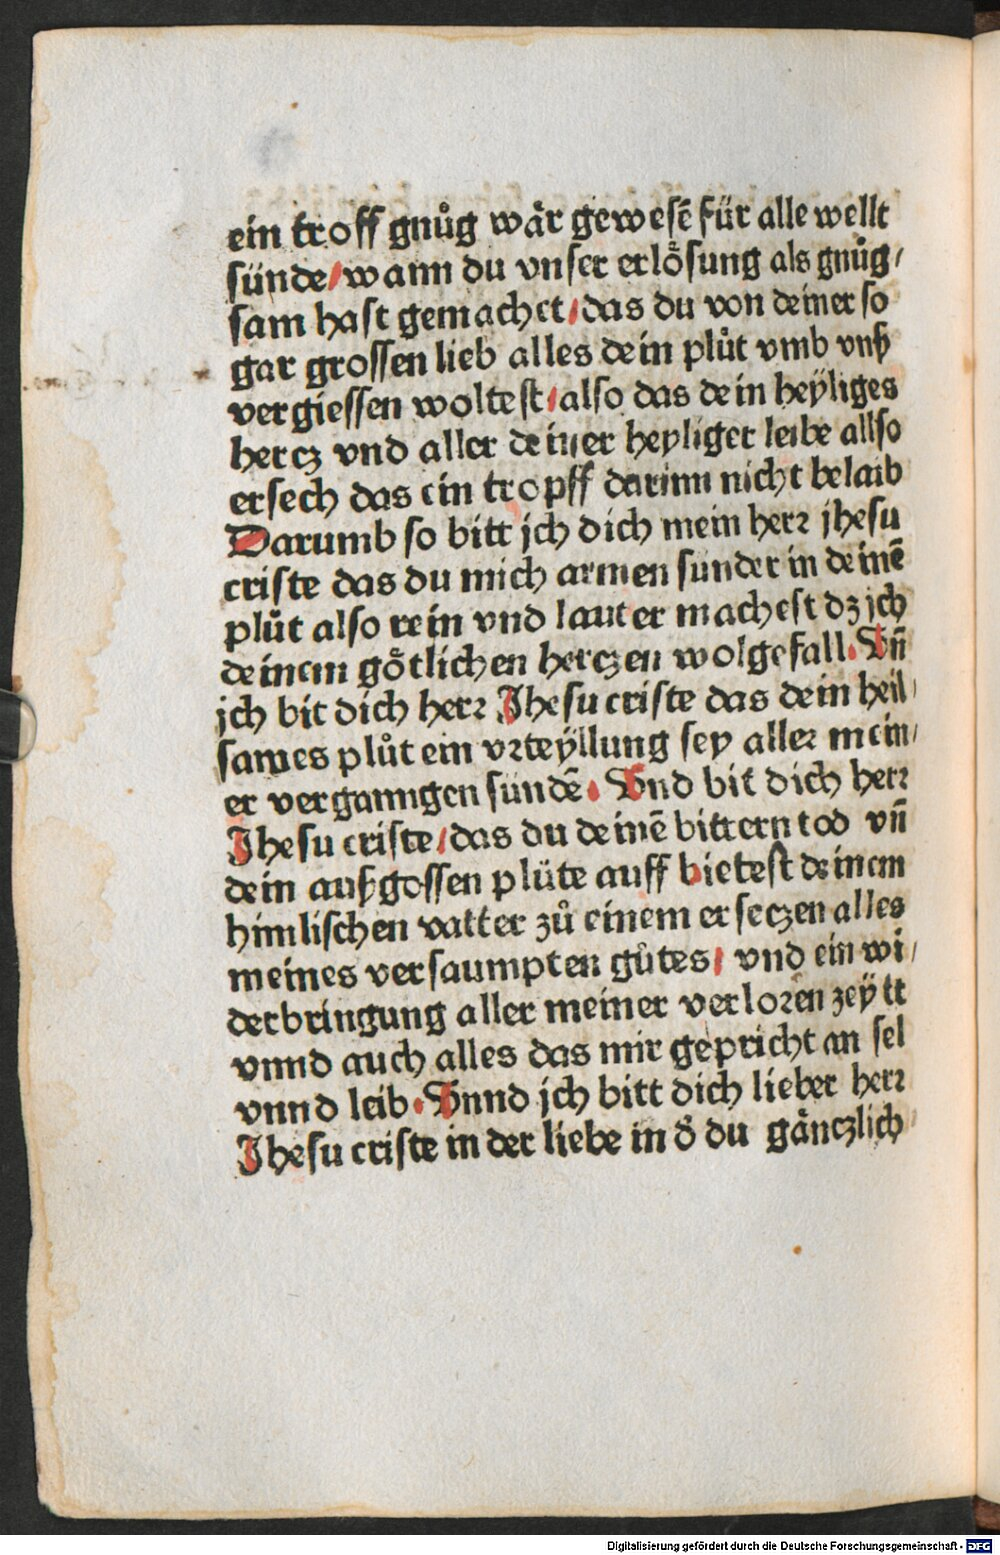 ein troff gnůg wår gewesē für alle wellt
sünde/wann du vnser erlo̊sung als gnůg/
sam hast gemachet/das du von deiner so
gar grossen lieb alles dein plůt vmb vnß
vergiessen woltest/also das dein heÿliges
hercz vnd aller deiner heyliger leibe allso
ersech das ein tropff darinn nicht belaib
Darumb so bitt jch dich mein herꝛ jhesu
criste das du mich armen sunder in deinē
plůt also rein vnd lauter machest dz jch
deinem go̊tlichen herczen wolgefall. Vn̄
jch bit dich herꝛ Jhesu criste das dein heil/
sames plůt ein vꝛteÿllung sey alleꝛ mein/
er verganngen sündē. Vnd bit dich herꝛ
Jhesu criste/das du deinē bittern tod vn̄
dein außgossen plüte auff bietest deinem
himlischen vatter zů einem erseczen alles
meines versaumpten gůtes/ vnd ein wi/
derbringung aller meiner verloꝛen zeÿtt
vnnd auch alles das mir gepricht an sel
vnnd leib. Vnnd jch bitt dich lieber herꝛ
Jhesu criste in der liebe in d̊ du gånczlich
Digitalisierung gefördert durch die Deutsche Forschungsgemeinschaft - DFG